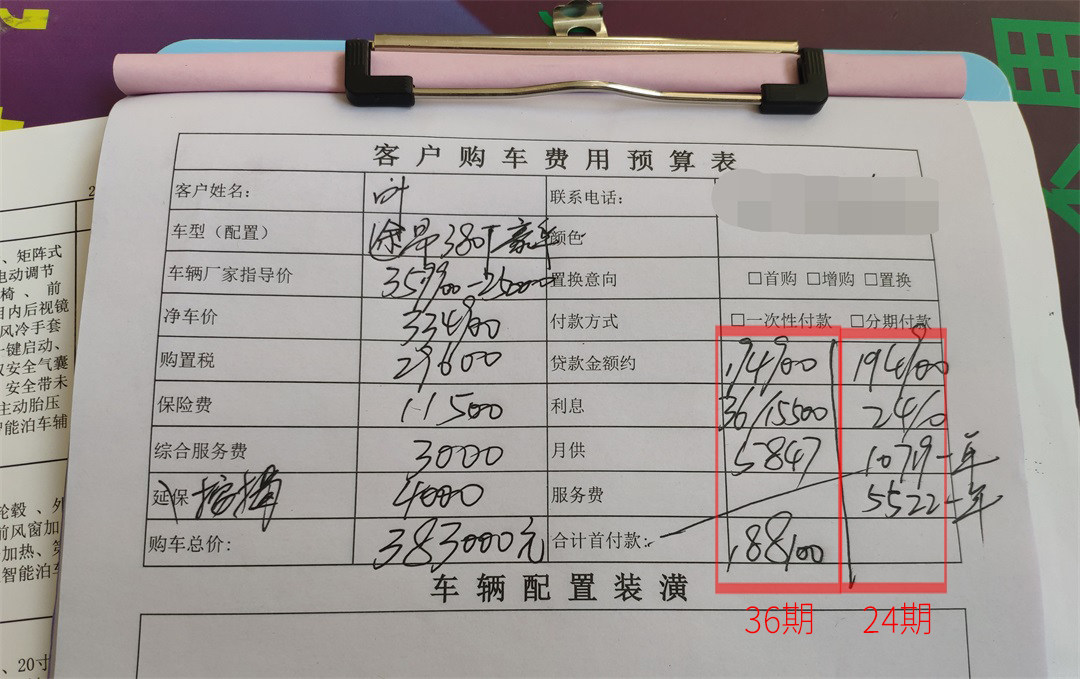 客户购车费用预算表
客户姓名: 叶 联系电话:
车型（配置） 途昂380T豪华 颜色
车辆厂家指导价 359900-25000 置换意向 □首购 □增购 □置换
净车价 334900 付款方式 □一次性付款 □分期付款
购置税 29600 贷款金额约 194900 194900
保险费 11500 利息 36/15500
综合服务费 3000 月供 5847 10719一年
延保 4000 服务费 5522一年
购车总价: 383000元 合计首付款: 188100
车辆配置装潢
36期 24期
、矩阵式
电动调节
椅、前
目内后视镜
风冷手套
一键启动、
双安全气囊
安全带未
主动胎压
智能泊车辅
轮毂、外
前风窗加
加热、第
智能泊车
、20寸